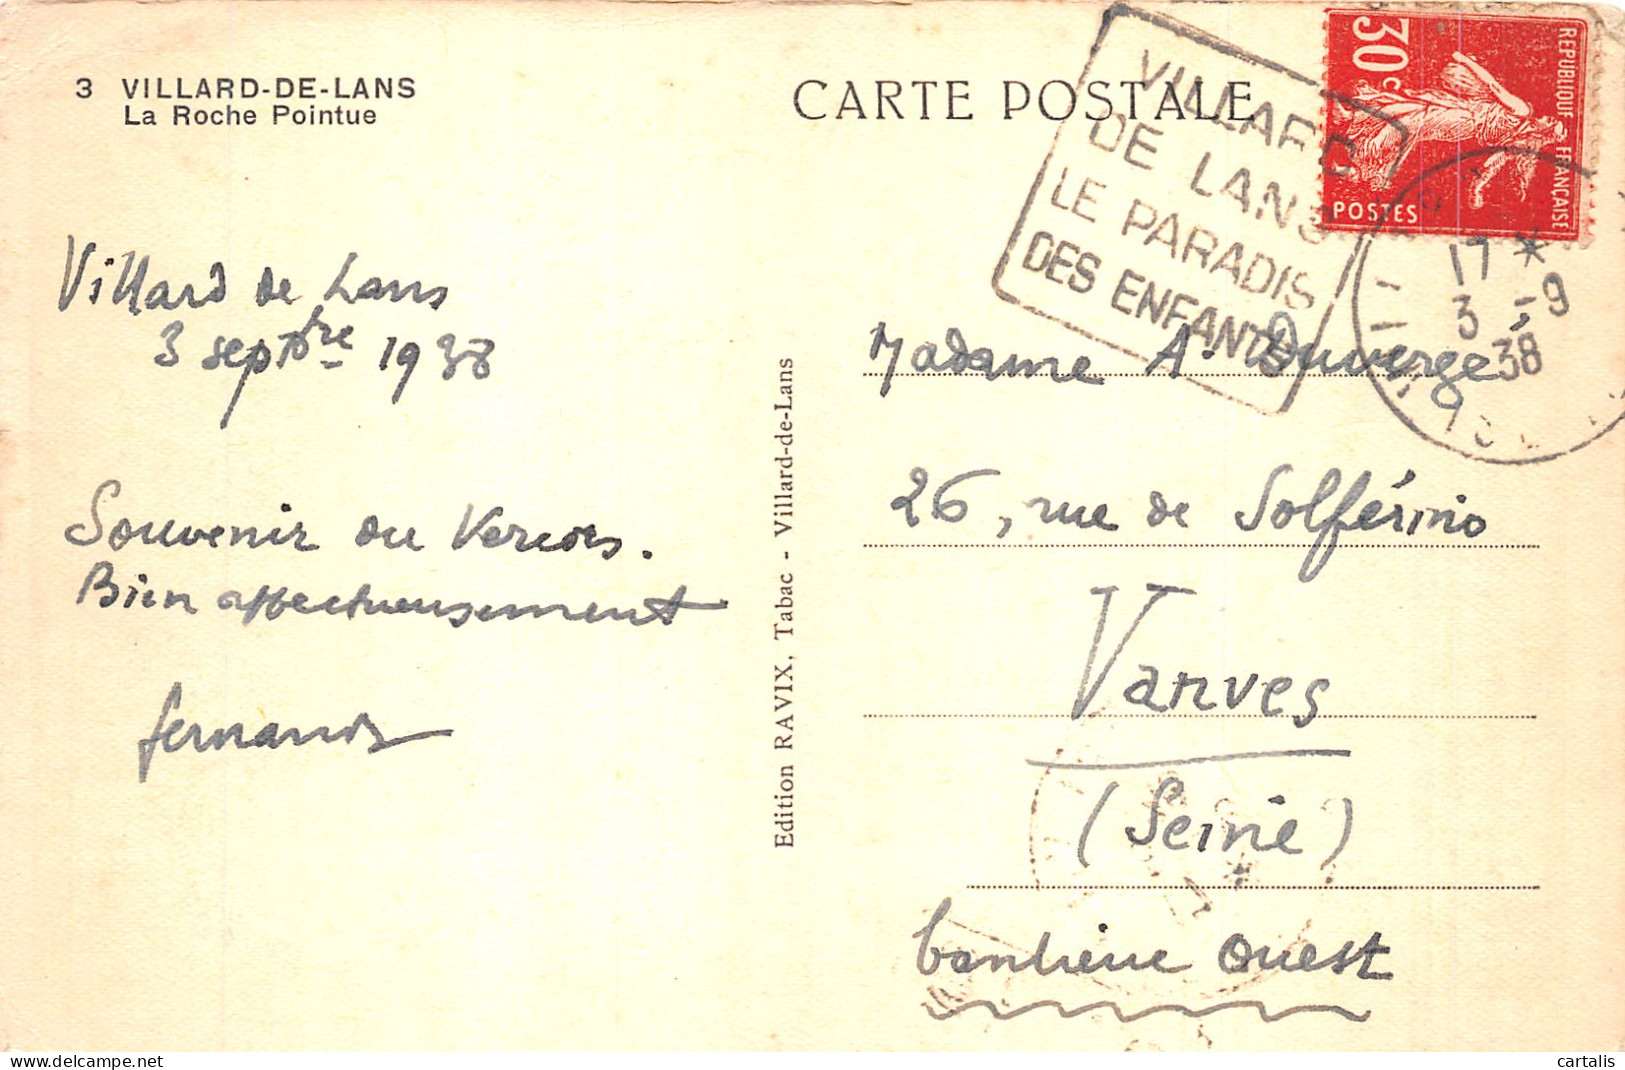 3 VILLARD-DE-LANS
La Roche Pointue
CARTE POSTALE
VILLARD
DE LANS
LE PARADIS
DES ENFANTS
30c
REPUBLIQUE FRANÇAISE
POSTES
17 *
3 - 9
38
Villard de Lans
3 septbre 1938
Souvenir du Vercors.
Bien affectueusement
Fernand
Edition RAVIX, Tabac - Villard-de-Lans
Madame A. Duvergé
26, rue de Solférino
Vanves
(Seine)
banlieue Ouest
cartalis